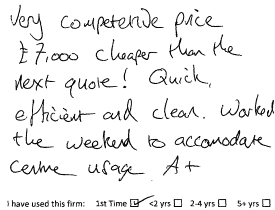 Very competetive price
£7,000 cheaper than the
next quote! Quick,
efficient and clean. Worked
the weekend to accomodate
centre usage. A+
I have used this firm: 1st Time ☑ <2 yrs ☐ 2-4 yrs ☐ 5+ yrs ☐